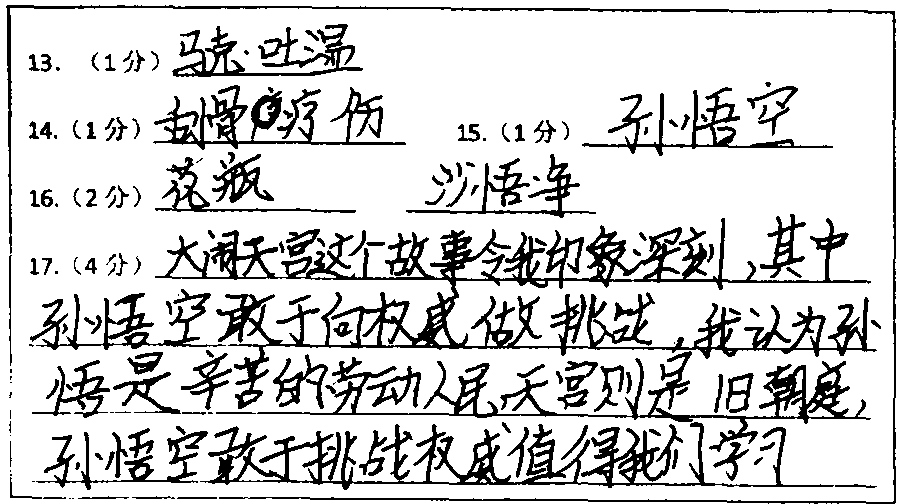 13. （1分）马克·吐温
14.（1分）刮骨疗伤 15.（1分）孙悟空
16.（2分）花瓶 沙悟净
17.（4分）大闹天宫这个故事令我印象深刻，其中
孙悟空敢于向权威做挑战，我认为孙
悟是辛苦的劳动人民天宫则是旧朝庭，
孙悟空敢于挑战权威值得我们学习